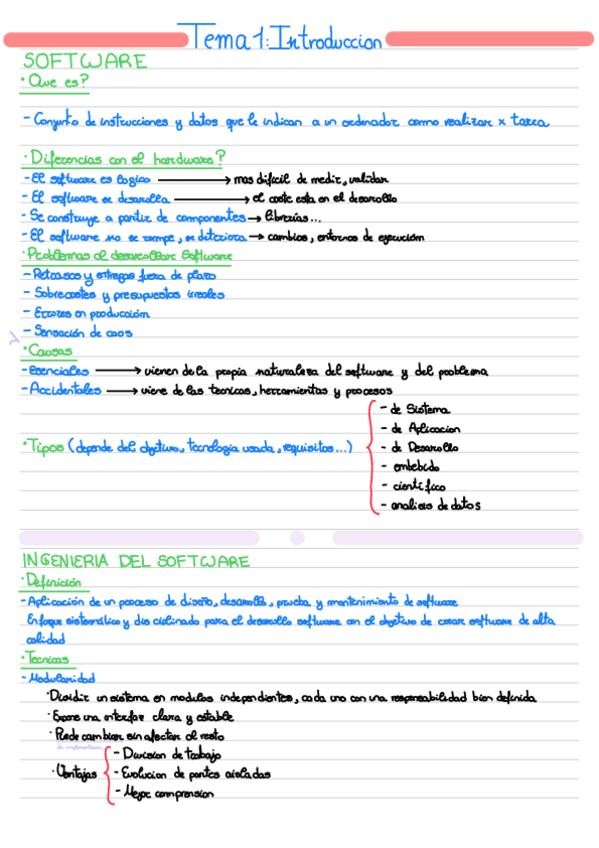 Tema 1: Introduccion
SOFTWARE
· Que es?
- Conjunto de instrucciones y datos que le indican a un ordenador como realizar x tarea
· Diferencias con el hardware?
- El software es logico → mas dificil de medir, validar
- El software se desarolla → el coste esta en el desarollo
- Se construye a partir de componentes → librerias...
- El software no se rompe, se deteriora → cambios, entornos de ejecución
· Problemas al desarrollar Software
- Retrasos y entregas fuera de plazo
- Sobrecostes y presupuestos irreales
- Errores en producción
- Sensación de caos
· Causas
- Esenciales → vienen de la propia naturaleza del software y del problema
- Accidentales → viene de las tecnicas, herramientas y procesos
· Tipos (depende del objetivo, tecnologia usada, requisitos...)
- de Sistema
- de Aplicacion
- de Desarollo
- embebido
- cientifico
- analisis de datos
INGENIERIA DEL SOFTWARE
· Definición
- Aplicación de un proceso de diseño, desarollo, prueba y mantenimiento de software
Enfoque sistemático y disciplinado para el desarollo software con el objetivo de crear software de alta
calidad
· Tecnicas
- Modularidad
· Dividir un sistema en modulos independientes, cada uno con una responsabilidad bien definida
· Expone una interfaz clara y estable
· Puede cambiar sin afectar al resto
· Ventajas
- Division de trabajo
- Evolucion de partes aisladas
- Mejor comprension